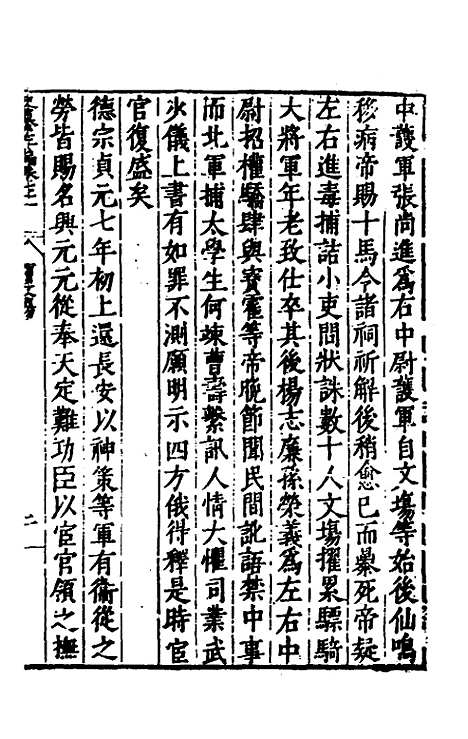 中護軍張尚進爲右中尉護軍自文場等始後仙鳴
移病帝賜十馬令諸祠祈解後稍愈已而暴死帝疑
左右進毒捕詰小吏問狀誅數十人文場擢累驃騎
大將軍年老致仕卒其後楊志廉孫榮義爲左右中
尉招權驕肆與竇霍等帝晚節聞民間訛語禁中事
而北軍捕太學生何竦曹壽繫訊人情大懼司業武
少儀上書有如罪不測願明示四方俄得釋是時宦
官復盛矣
德宗貞元七年初上還長安以神策等軍有衛從之
勞皆賜名興元元從奉天定難功臣以宦官領之撫
竇文場
二